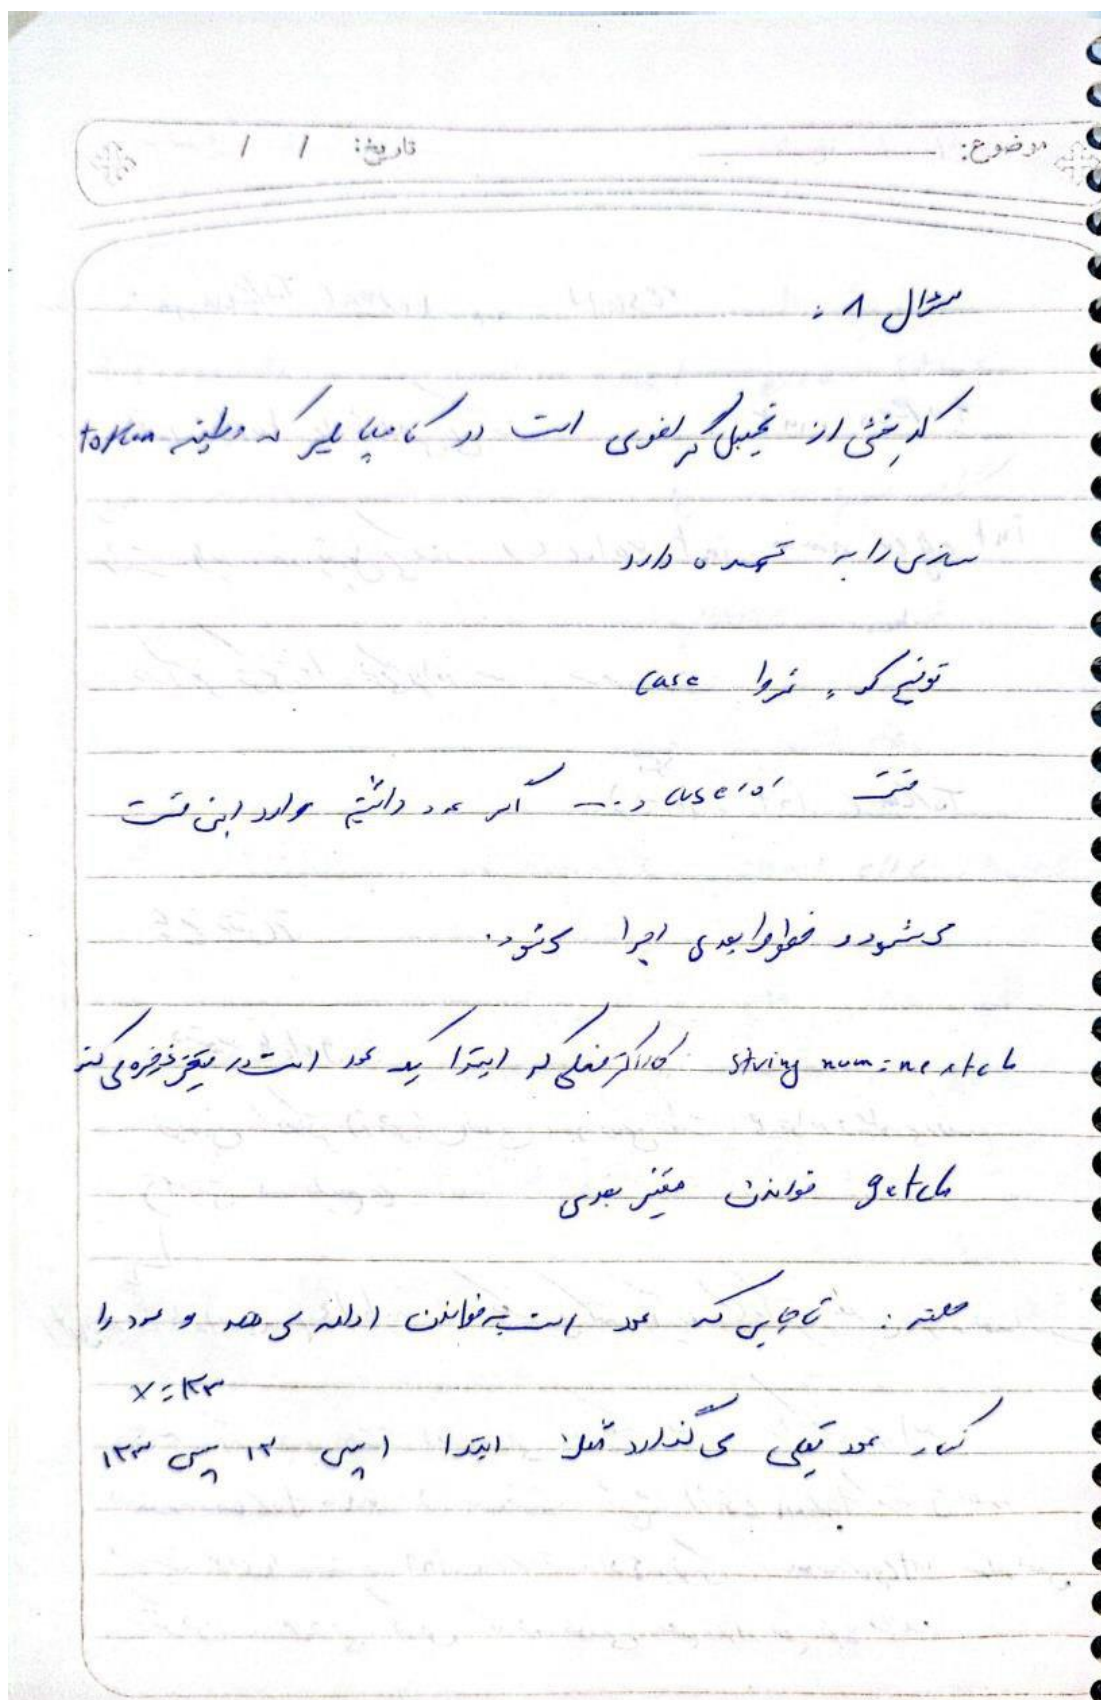 موضوع: تاریخ: / /
سوال ۸ :
کد بخشی از تحلیل گر لغوی است در کامپایلر که وظیفه token
سازی را به عهده دارد
توضیح کد :
case
قسمت case '0' و ... اگر عدد داشتیم وارد این قسمت
می شود و خطوط بعدی اجرا می شود.
String num = nextch کاراکتر فعلی که ابتدا یک عدد است در متغیر ذخیره می کند
getch خواندن متغیر بعدی
حلقه : تا جایی که عدد است به خواندن ادامه می دهد و عدد را
x = ۱۲۳
کنار عدد قبلی می گذارد مثلا: ابتدا ۱ سپس ۱۲ سپس ۱۲۳